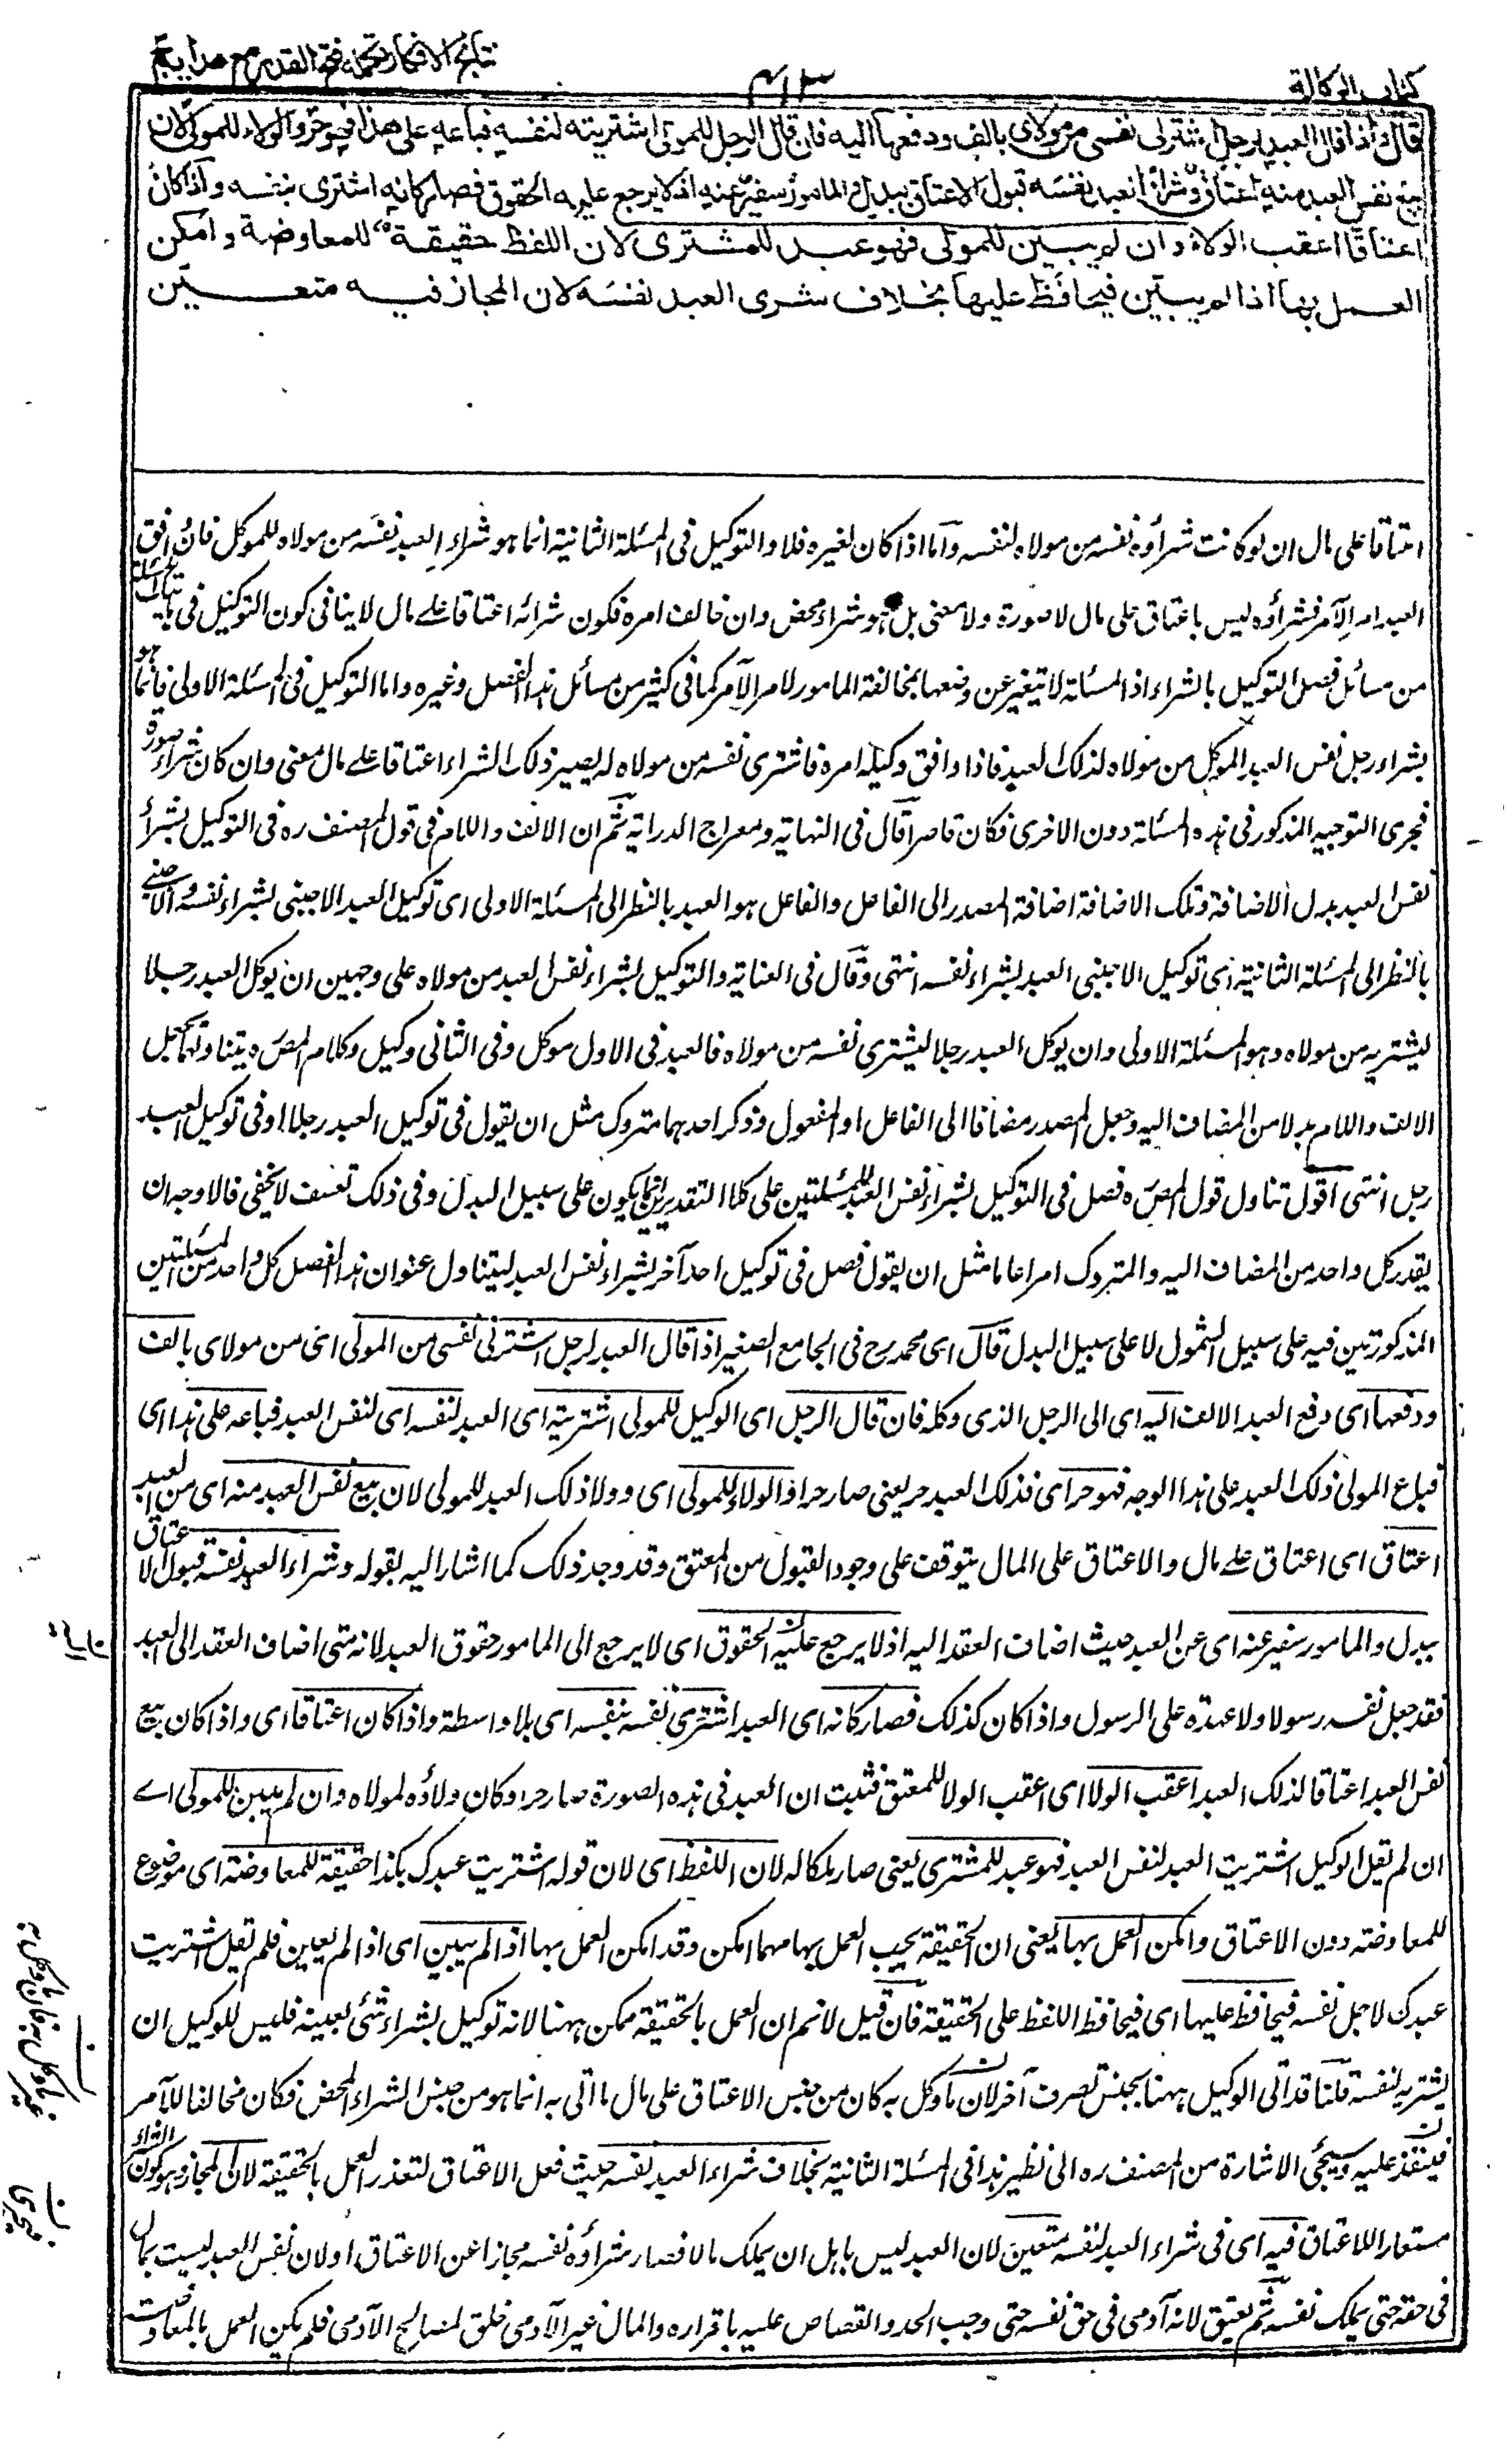 كتاب الوكالة
٤١٣
نتائج الافكار تكملة فتح القدير مع هدايه ج
قال واذا قال العبد لرجل اشترلى نفسى من مولاى بالف ودفعها اليه فان قال الرجل للمولى اشتريته لنفسه فباعه على هذا فهو حر والولاء للمولى لان
بيع نفس العبد منه اعتاق وشراء العبد نفسه قبول الاعتاق ببدل والمامور سفير عنه اذ لا يرجع عليه الحقوق فصار كانه اشترى بنفسه واذا كان
اعتاقا اعقب الولاء وان لم يبين للمولى فهو عبد للمشترى لان اللفظ حقيقة للمعاوضة وامكن
العمل بها اذا لم يبين فيحافظ عليها بخلاف شرى العبد نفسه لان المجاز فيه متعين
اعتاقا على مال ان لو كانت شراؤه نفسه من مولاه لنفسه واما اذا كان لغيره فلا والتوكيل فى المسئلة الثانية انما هو شراء العبد نفسه من مولاه للموكل فان وافق
العبد امر الآمر فشراؤه ليس باعتاق على مال لا صورة ولا معنى بل هو شراء محض وان خالف امره فكون شرائه اعتاقا على مال لا ينافى كون التوكيل فى تلك المسئلة
من مسائل فصل التوكيل بالشراء اذ المسئلة لا تتغير عن وضعها بمخالفة المامور لامر الآمر كما فى كثير من مسائل هذا الفصل وغيره واما التوكيل فى المسئلة الاولى فانما هو
بشراء رجل نفس العبد الموكل من مولاه لذلك العبد فاذا وافق وكيله امره فاشترى نفسه من مولاه له يصير ذلك الشراء اعتاقا على مال معنى وان كان شراء صورة
فيجرى التوجيه المذكور فى هذه المسئلة دون الاخرى فكان قاصرا قال فى النهاية ومعراج الدراية ثم ان الالف واللام فى قول المصنف ره فى التوكيل بشراء
نفس العبد بدل الاضافة وتلك الاضافة اضافة المصدر الى الفاعل والفاعل هو العبد بالنظر الى المسئلة الاولى اى توكيل العبد الاجنبى بشراء نفسه والاجنبى
بالنظر الى المسئلة الثانية اى توكيل الاجنبى العبد بشراء نفسه انتهى وقال فى العناية والتوكيل بشراء نفس العبد من مولاه على وجهين ان يوكل العبد رجلا
ليشتريه من مولاه وهو المسئلة الاولى وان يوكل العبد رجلا ليشترى نفسه من مولاه فالعبد فى الاول موكل وفى الثانى وكيل وكلام المص ره يتناولهما بجعل
الالف واللام بدلا من المضاف اليه وجعل المصدر مضافا الى الفاعل او المفعول وذكر احدهما متروك مثل ان يقول فى توكيل العبد رجلا او فى توكيل العبد
رجل انتهى اقول تناول قول المص ره فصل فى التوكيل بشراء نفس العبد للمسئلتين على كلا التقديرين انما يكون على سبيل البدل وفى ذلك تعسف لا يخفى فالاوجه ان
يقدر كل واحد من المضاف اليه والمتروك امرا عاما مثل ان يقول فصل فى توكيل احد آخر بشراء نفس العبد ليتناول عنوان هذا الفصل كل واحد من المسئلتين
المذكورتين فيه على سبيل الشمول لا على سبيل البدل قال اى محمد رح فى الجامع الصغير اذا قال العبد لرجل اشترلى نفسى من المولى اى من مولاى بالف
ودفعها اى دفع العبد الالف اليه اى الى الرجل الذى وكله فان قال الرجل اى الوكيل للمولى اشتريته اى العبد لنفسه اى لنفس العبد فباعه على هذا اى
فباع المولى ذلك العبد على هذا الوجه فهو حر اى فذلك العبد حر يعنى صار حرا والولاء للمولى اى وولا ذلك العبد للمولى لان بيع نفس العبد منه اى من العبد
اعتاق اى اعتاق على مال والاعتاق على المال يتوقف على وجود القبول من المعتق وقد وجد ذلك كما اشار اليه بقوله وشراء العبد نفسه قبول الاعتاق
ببدل والمامور سفير عنه اى عن العبد حيث اضاف العقد اليه اذ لا يرجع عليه الحقوق اى لا يرجع الى المامور حقوق العبد لانه متى اضاف العقد الى العبد
فقد جعل نفسه رسولا ولا عهدة على الرسول واذا كان كذلك فصار كانه اى العبد اشترى نفسه بنفسه اى بلا واسطة واذا كان اعتاقا اى واذا كان بيع
نفس العبد اعتاقا لذلك العبد اعقب الولا اى اعقب الولا للمعتق فثبت ان العبد فى هذه الصورة صار حرا وكان ولاؤه لمولاه وان لم يبين للمولى اى
ان لم يقل الوكيل اشتريت العبد لنفس العبد فهو عبد للمشترى يعنى صار ملكا له لان اللفظ اى لان قوله اشتريت عبدك بكذا حقيقة للمعاوضة اى موضوع
للمعاوضة دون الاعتاق وامكن العمل بها يعنى ان الحقيقة يجب العمل بها مهما امكن وقد امكن العمل بها اذا لم يبين اى اذا لم يعين فلم يقل اشتريت
عبدك لاجل نفسه فيحافظ عليها اى فيحافظ اللفظ على الحقيقة فان قيل لا نسلم ان العمل بالحقيقة ممكن ههنا لانه توكيل بشراء شئ بعينه فليس للوكيل ان
يشتريه لنفسه قلنا قد اتى الوكيل ههنا بجنس تصرف آخر لان ما وكل به كان من جنس الاعتاق على مال ما اتى به انما هو من جنس الشراء المحض فكان مخالفا للآمر
فينفذ عليه وسيجئ الاشارة من المصنف ره الى نظير هذا فى المسئلة الثانية بخلاف شراء العبد نفسه حيث فعل الاعتاق لتعذر العمل بالحقيقة لان المجاز وهو كون الشراء
مستعارا للاعتاق فيه اى فى شراء العبد لنفسه متعين لان العبد ليس باهل ان يملك مالا فصار شراؤه نفسه مجازا عن الاعتاق او لان نفس العبد ليست بمال
فى حقه حتى يملك نفسه ثم يعتق لانه آدمى فى حق نفسه حتى وجب الحد والقصاص عليه باقراره والمال غير الآدمى خلق لمصالح الآدمى فلم يكن العمل بالمعاوضة